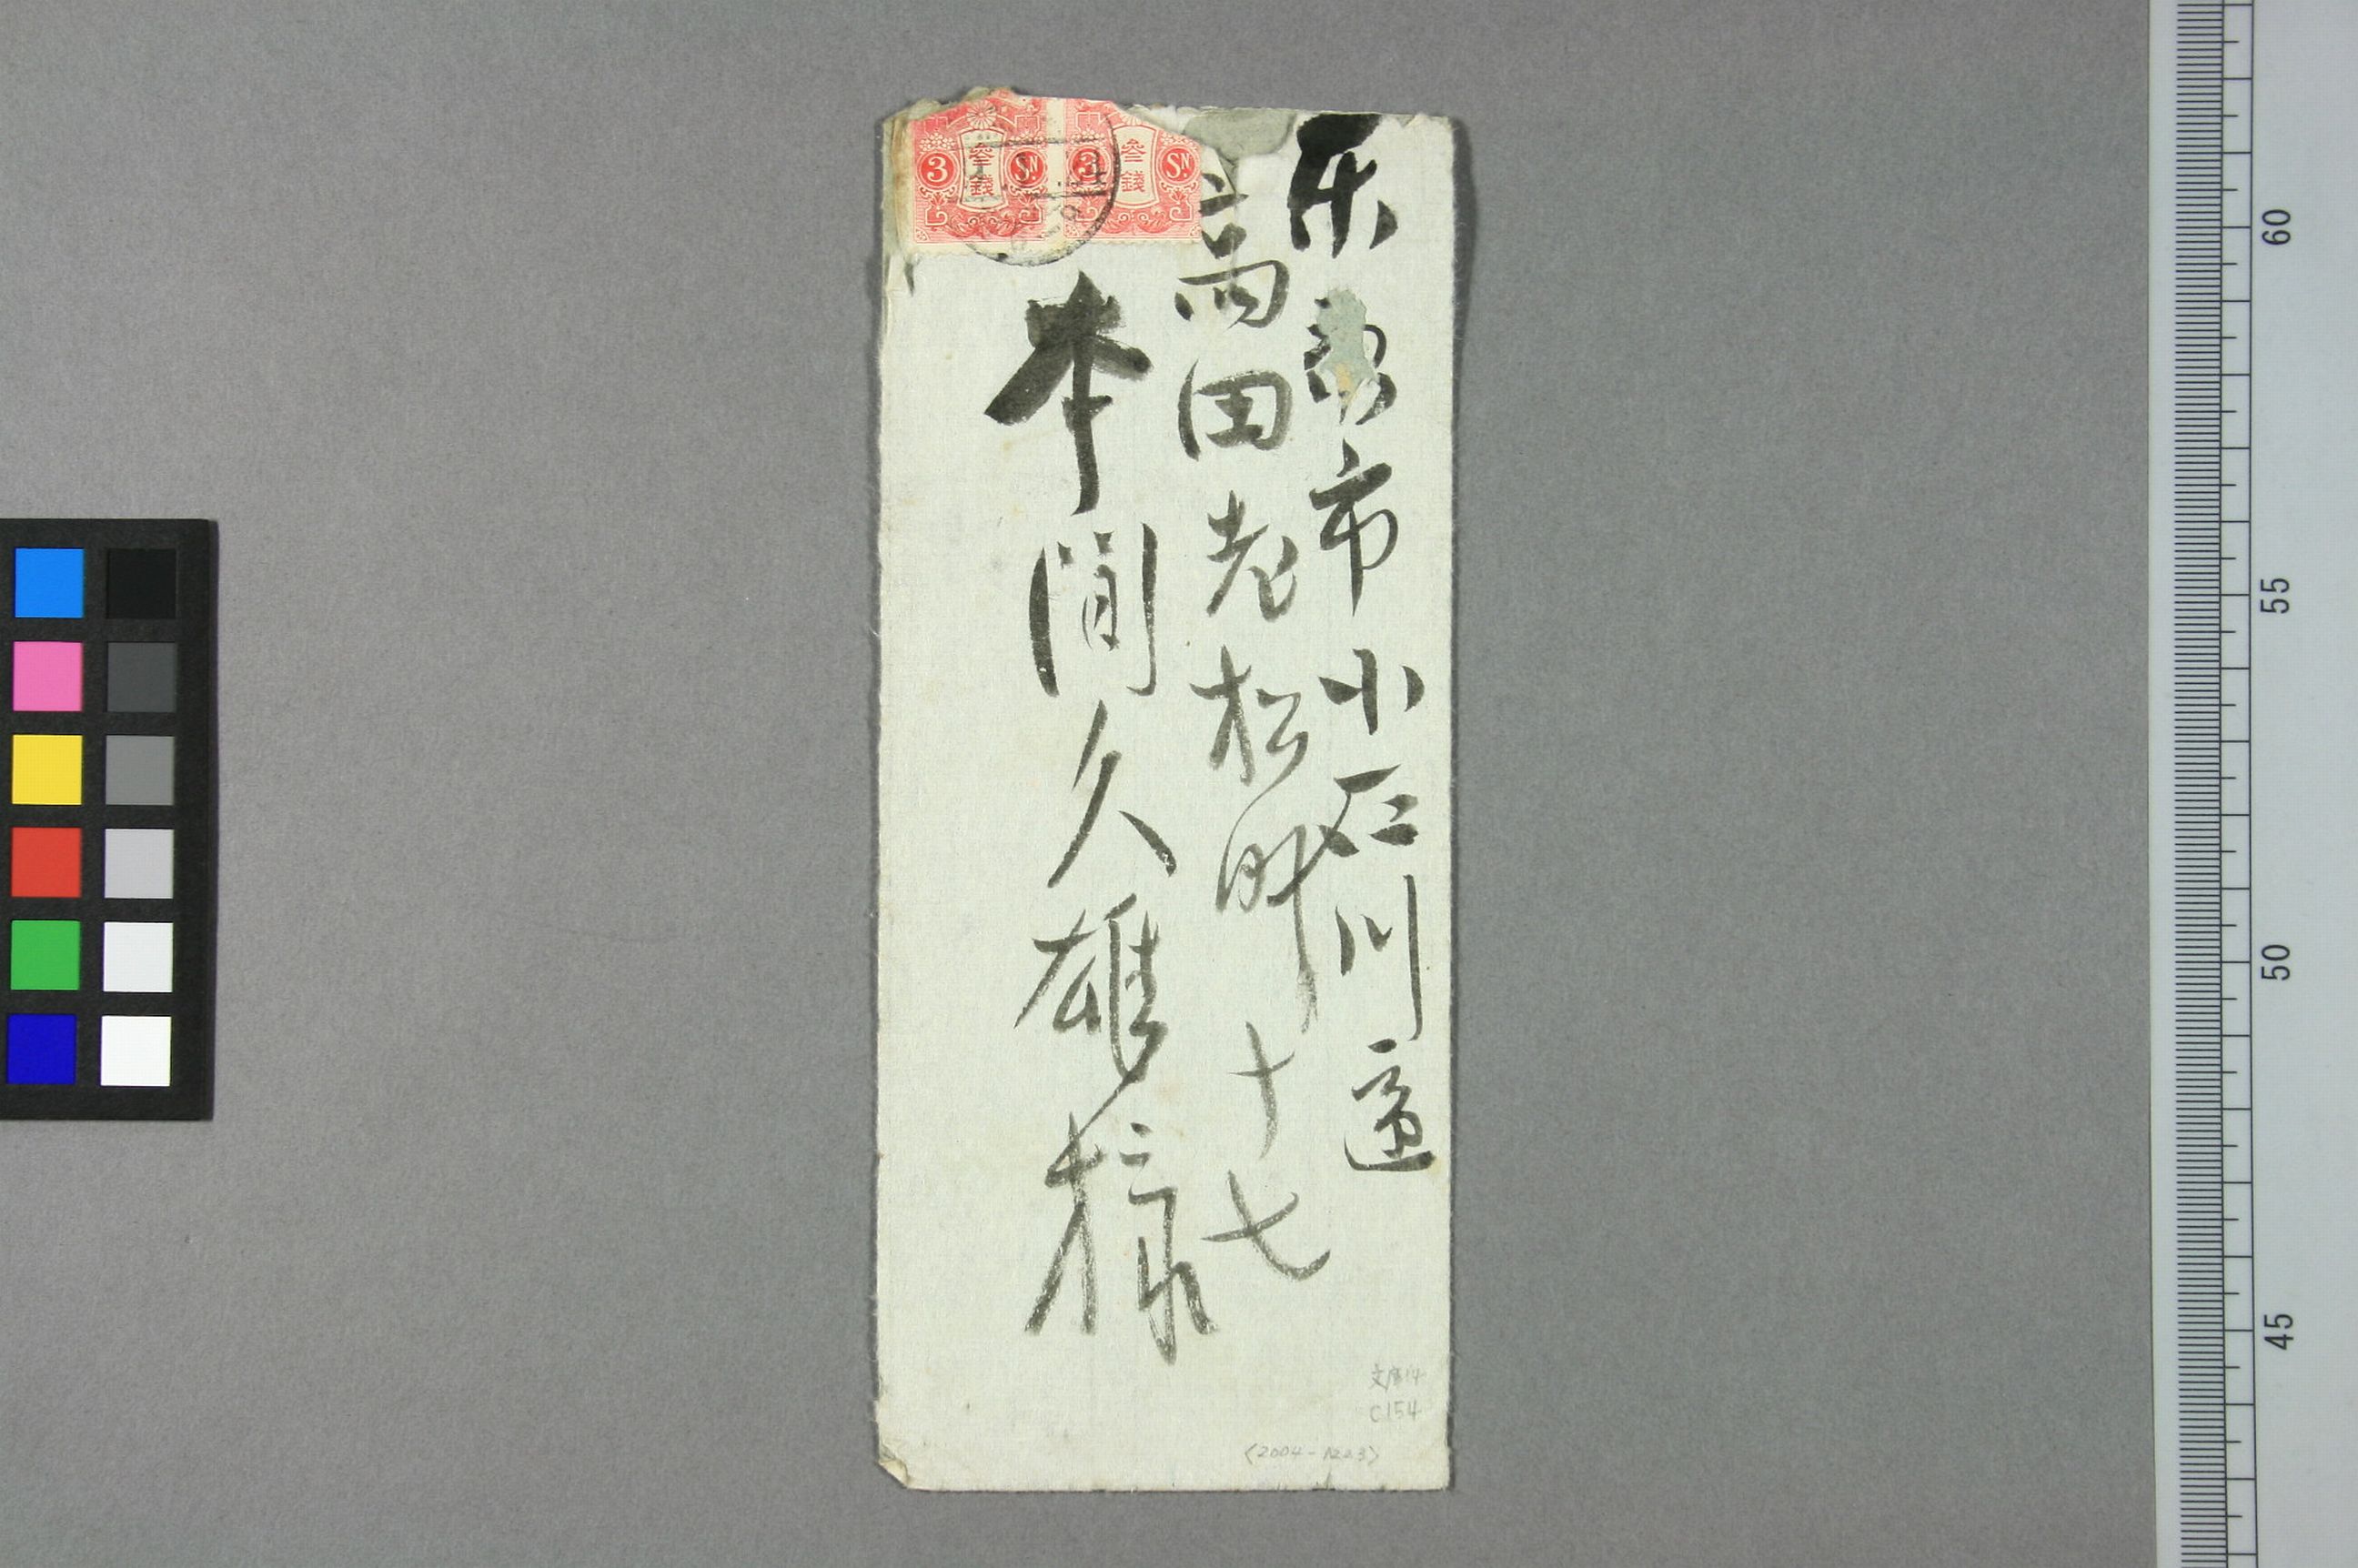 東京市小石川區
高田老松町十七
本間久雄様
3 参銭 SN 3 参銭 SN
文庫14
C154
(2004-1223)
60
55
50
45